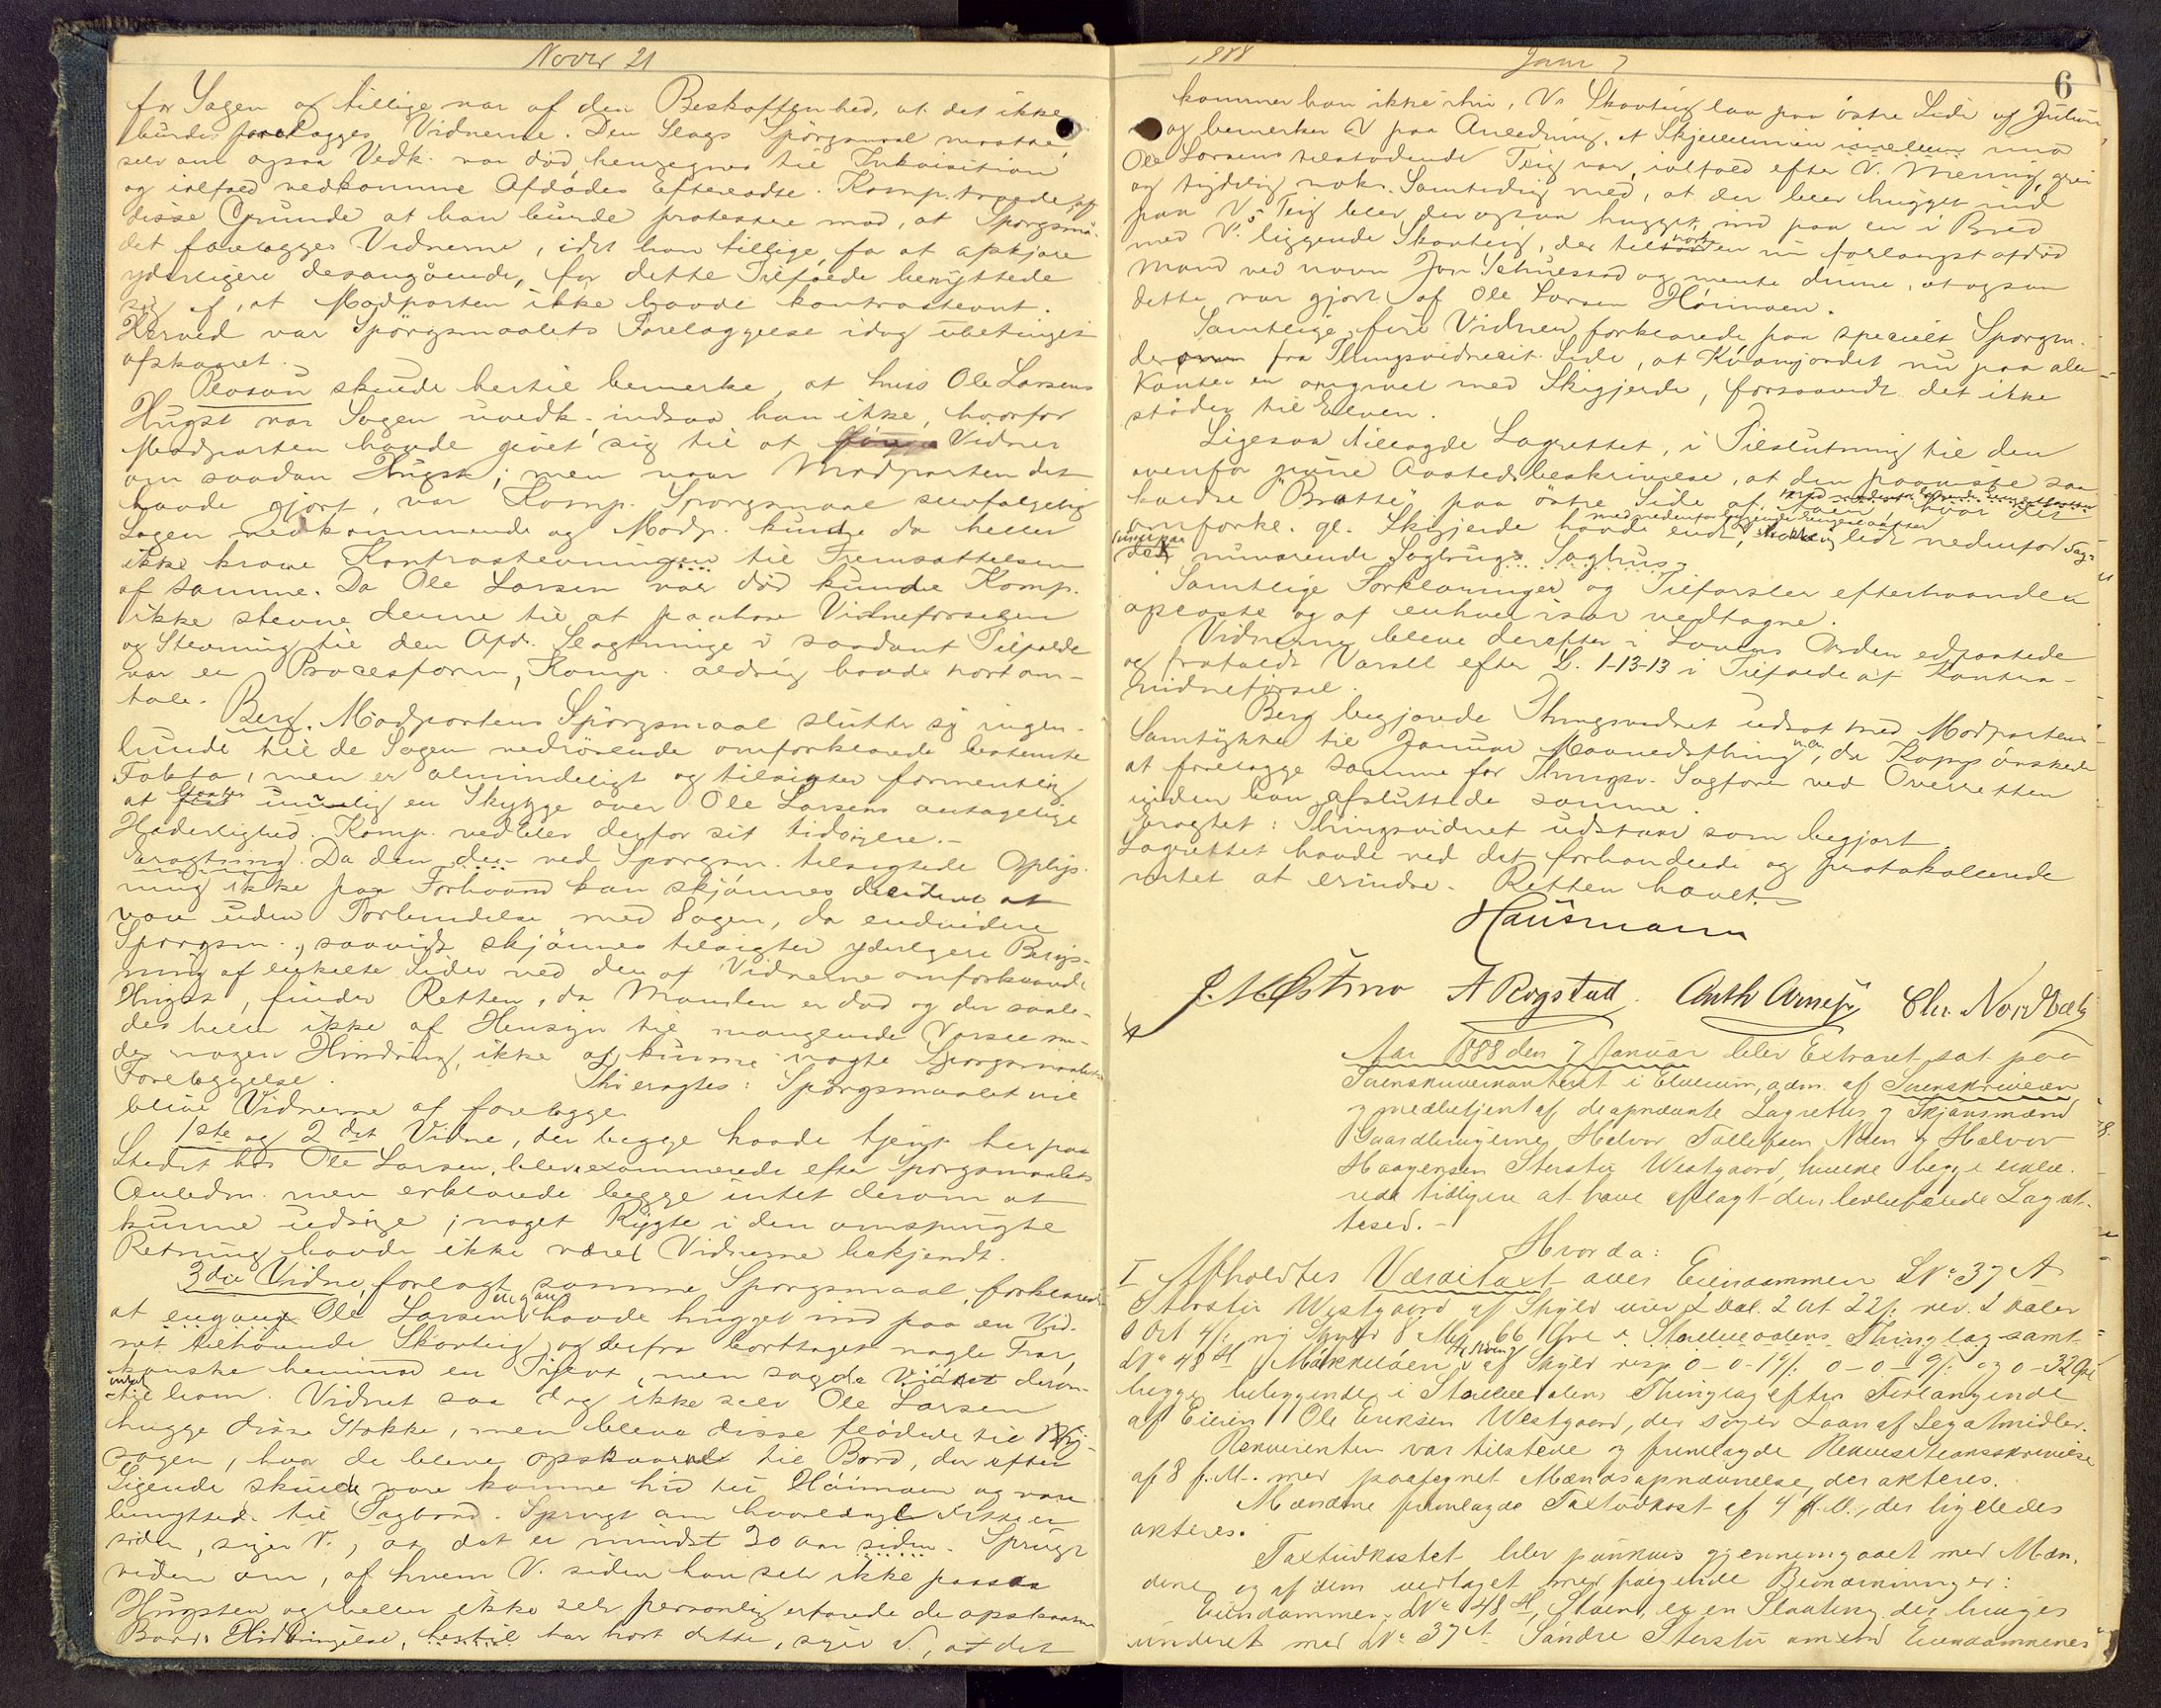 Novbr 21
for Sagen og tillige var af den Beskaffenhed, at det ikke
burde forelægges Vidnerne. Den Slags Spörgsmaal maatte,
selv om ogsaa Vedk. var död, henregnes til Inkvisition
og ialfald vedkomme Afdödes Eftermæle. Komp. troede af
disse Grunde at han burde protestere mod, at Spörgsmaa-
det forelægges Vidnerne, idet han tillige, for at afskjære
yderligere desangaaende, for dette Tilfælde benyttede
sig af, at Modparten ikke havde kontrastevnt.
Herved var Spörgsmaalets Forelæggelse idag ubetinget
afskaaret.
skulde hertil bemerke, at hvis Ole Larsens
Hugst var Sagen uvedk. indsaa han ikke, hvorfor
Modparten havde givet sig til at före Vidner
om saadan Hugst; men naar Modparten det
havde gjort, var Komp. Spörgsmaal selvfölgelig
Sagen vedkommende og Modp. kunde da heller
ikke kræve Kontrastevningen til Fremsættelsen
af samme. Da Ole Larsen var död kunde Komp.
ikke stevne denne til at paahöre Vidneförselen
og Stevning til den Afd. Slægtninge i saadant Tilfælde
var en Procesform, Komp. aldrig havde hört om-
tale.
Berg. Modpartens Spörgsmaal slutter sig ingen-
lunde til de Sagen vedrörende omforklarede bestemte
Fakta, men er almindeligt og tilsigter formentlig
at kaste en Skygge over Ole Larsens antagelige
Hæderlighed. Komp. vedblev derfor sit tidligere.-
Eragtning. Da den der ved Spörgsm. tilsigtede Oplys-
ning ikke paa Forhaand kan skjönnes at
være uden Forbindelse med Sagen, da endvidere
Spörgsm., saavidt skjönnes tilsigter yderligere Belys-
ning af enkelte Sider ved den af Vidnerne omforklarede
Hugst, finder Retten, da Manden er död og der saale-
des heller ikke af Hensyn til manglende Varsel mö-
der nogen Hindring, ikke at kunne nægte Spörgsmaalets
Forelæggelse. Thi eragtes: Spörgsmaalet vil
blive Vidnerne at forelægge.
1ste og 2det Vidne, der begge havde tjent her paa
Stedet hos Ole Larsen, blev examinerede efter Spörgsmaalets
Anledn. men erklærede begge intet derom at
kunne udsige; noget Rygte i den omspurgte
Retning havde ikke været Vidnerne bekjendt.
3die Vidne, forelagt samme Spörgsmaal, forklarede
at engang Ole Larsen havde hugget ind paa en Vid-
net tilhörende Skovteig og derfra borttaget nogle Trær,
kanske henimod en Tylvt, men sagde Vidnet derom
intet til ham. Vidnet saa dog ikke selv Ole Larsen
hugge disse Stokke, men bleve disse flödede til
sagen, hvor de bleve opskaaret til Bord, der efter
Sigende skulde være komne hid til Höimoen og være
benyttede til Tagbord. Spurgt om hvorlænge dette er
siden, siger V., at det er mindst 30 aar siden. Spurgt
videre om, af hvem V. siden han selv ikke paasaa
Hugsten og heller ikke selv personlig erfarede de opskaarne
Bords Hidbringelse, har hört dette, siger V., at det
1888 Janr 7
6
kommer han ikke ihu. V's Skovteig laa paa östre Side af Julien
og bemerker V paa Anledning, at Skjellinien imellem
Ole Larsens tilstödende Teig var, ialfald efter V. Mening, grei
og tydelig nok. Samtidig med, at der blev hugget ind
paa V's Teig blev der ogsaa hugget ind paa en i Bred
med V's liggende Skovteig, der tilhörte en nu forlængst afdöd
Mand ved navn Jon og mente denne, at ogsaa
dette var gjort af Ole Larsen Höimoen.
Samtlige fire Vidner forklarede paa specielt Spörgsm.
derom fra Thingsvidnecit. Side, at Kvamjordet nu paa alle
Kanter er omgivet med Skigjerde, forsaavidt det ikke
stöder til Elven.
Ligesaa tillagde Lagrettet, i Tilslutning til den
ovenfor givne Aastedsbeskrivelse, at den paaviste saa-
kaldte "Bratte" paa östre Side af hvor det
omforkl. gl. Skigjerde havde endt, lidt nedenfor Sag-
det nuværende Sagbrugs Saghus.
Samtlige Forklaringer og Tilförsler efterhaanden
oplæste og af enhver især vedtagne.
Vidnerne bleve derefter i Lovens Orden edfæstede
og frafaldt Varsel efter L. 1-13-13 i Tilfælde af Kontra-
vidneförsel.
Berg begjærede Thingsvidnet udsat med Modpartens
Samtykke til Januar Maanedsthing n. a., da Komp önskede
at forelægge samme for Thingsv. Sagförer ved Overretten
inden han afsluttede samme.
Eragtet: Thingsvidnet udstaar som begjært.
Lagrettet havde ved det forhandlede og protokollerede
intet at erindre. Retten hævet.
Hausmann
J. M. Østmo A Rogstad. Anth Arnesen Chr. Nordbæk
Aar 1888 den 7 Januar blev Extraret sat paa
Sorenskriverkontoret i Elverum, adm. af Sorenskriveren
og medbetjent af de opnævnte Lagrettes og Skjönsmænd
Gaardbrugerne Halvor Tollefsen Noen og Halvor
Haagensen Sterstu Westgaard, hvilke begge erklæ-
rede tidligere at have aflagt den lovbefalede Lagret-
tesed.-
Hvorda:
I Afholdtes Værditaxt over Eiendommen LNo 37 A
Sterstu Westgaard af Skyld uier 2 Dal. 2 Ort 22 s. rev. 2 Daler
0 Ort 4 s. ny Skyld 8 Mrk 66 Øre i Storelvedalens Thinglag samt
LNo 48 H, Mökkelöen af Skyld resp 0-0-14 s. 0-0-9 s. og 0-32 Øre
begge beliggende i Storelvedalens Thinglag efter Forlangende
af Eieren Ole Eriksen Westgaard, der söger Laan af Legatmidler.
Rekvirenten var tilstede og fremlagde Rekvisitionsskrivelse
af 8 f. M. med paategnet Mændsopnævnelse, der akteres.
Mændene fremlagde Taxtudkast af 4 d. M., der ligeledes
akteres.
Taxtudkastet blev punktvis gjennemgaaet med Mæn-
dene, og af dem vedtaget med fölgende Bemærkninger:
Eiendommen LNo 48 H, Moen, er en Slaateng der bruges
under et med LNo 37 A Söndre Sterstu Eiendommenes